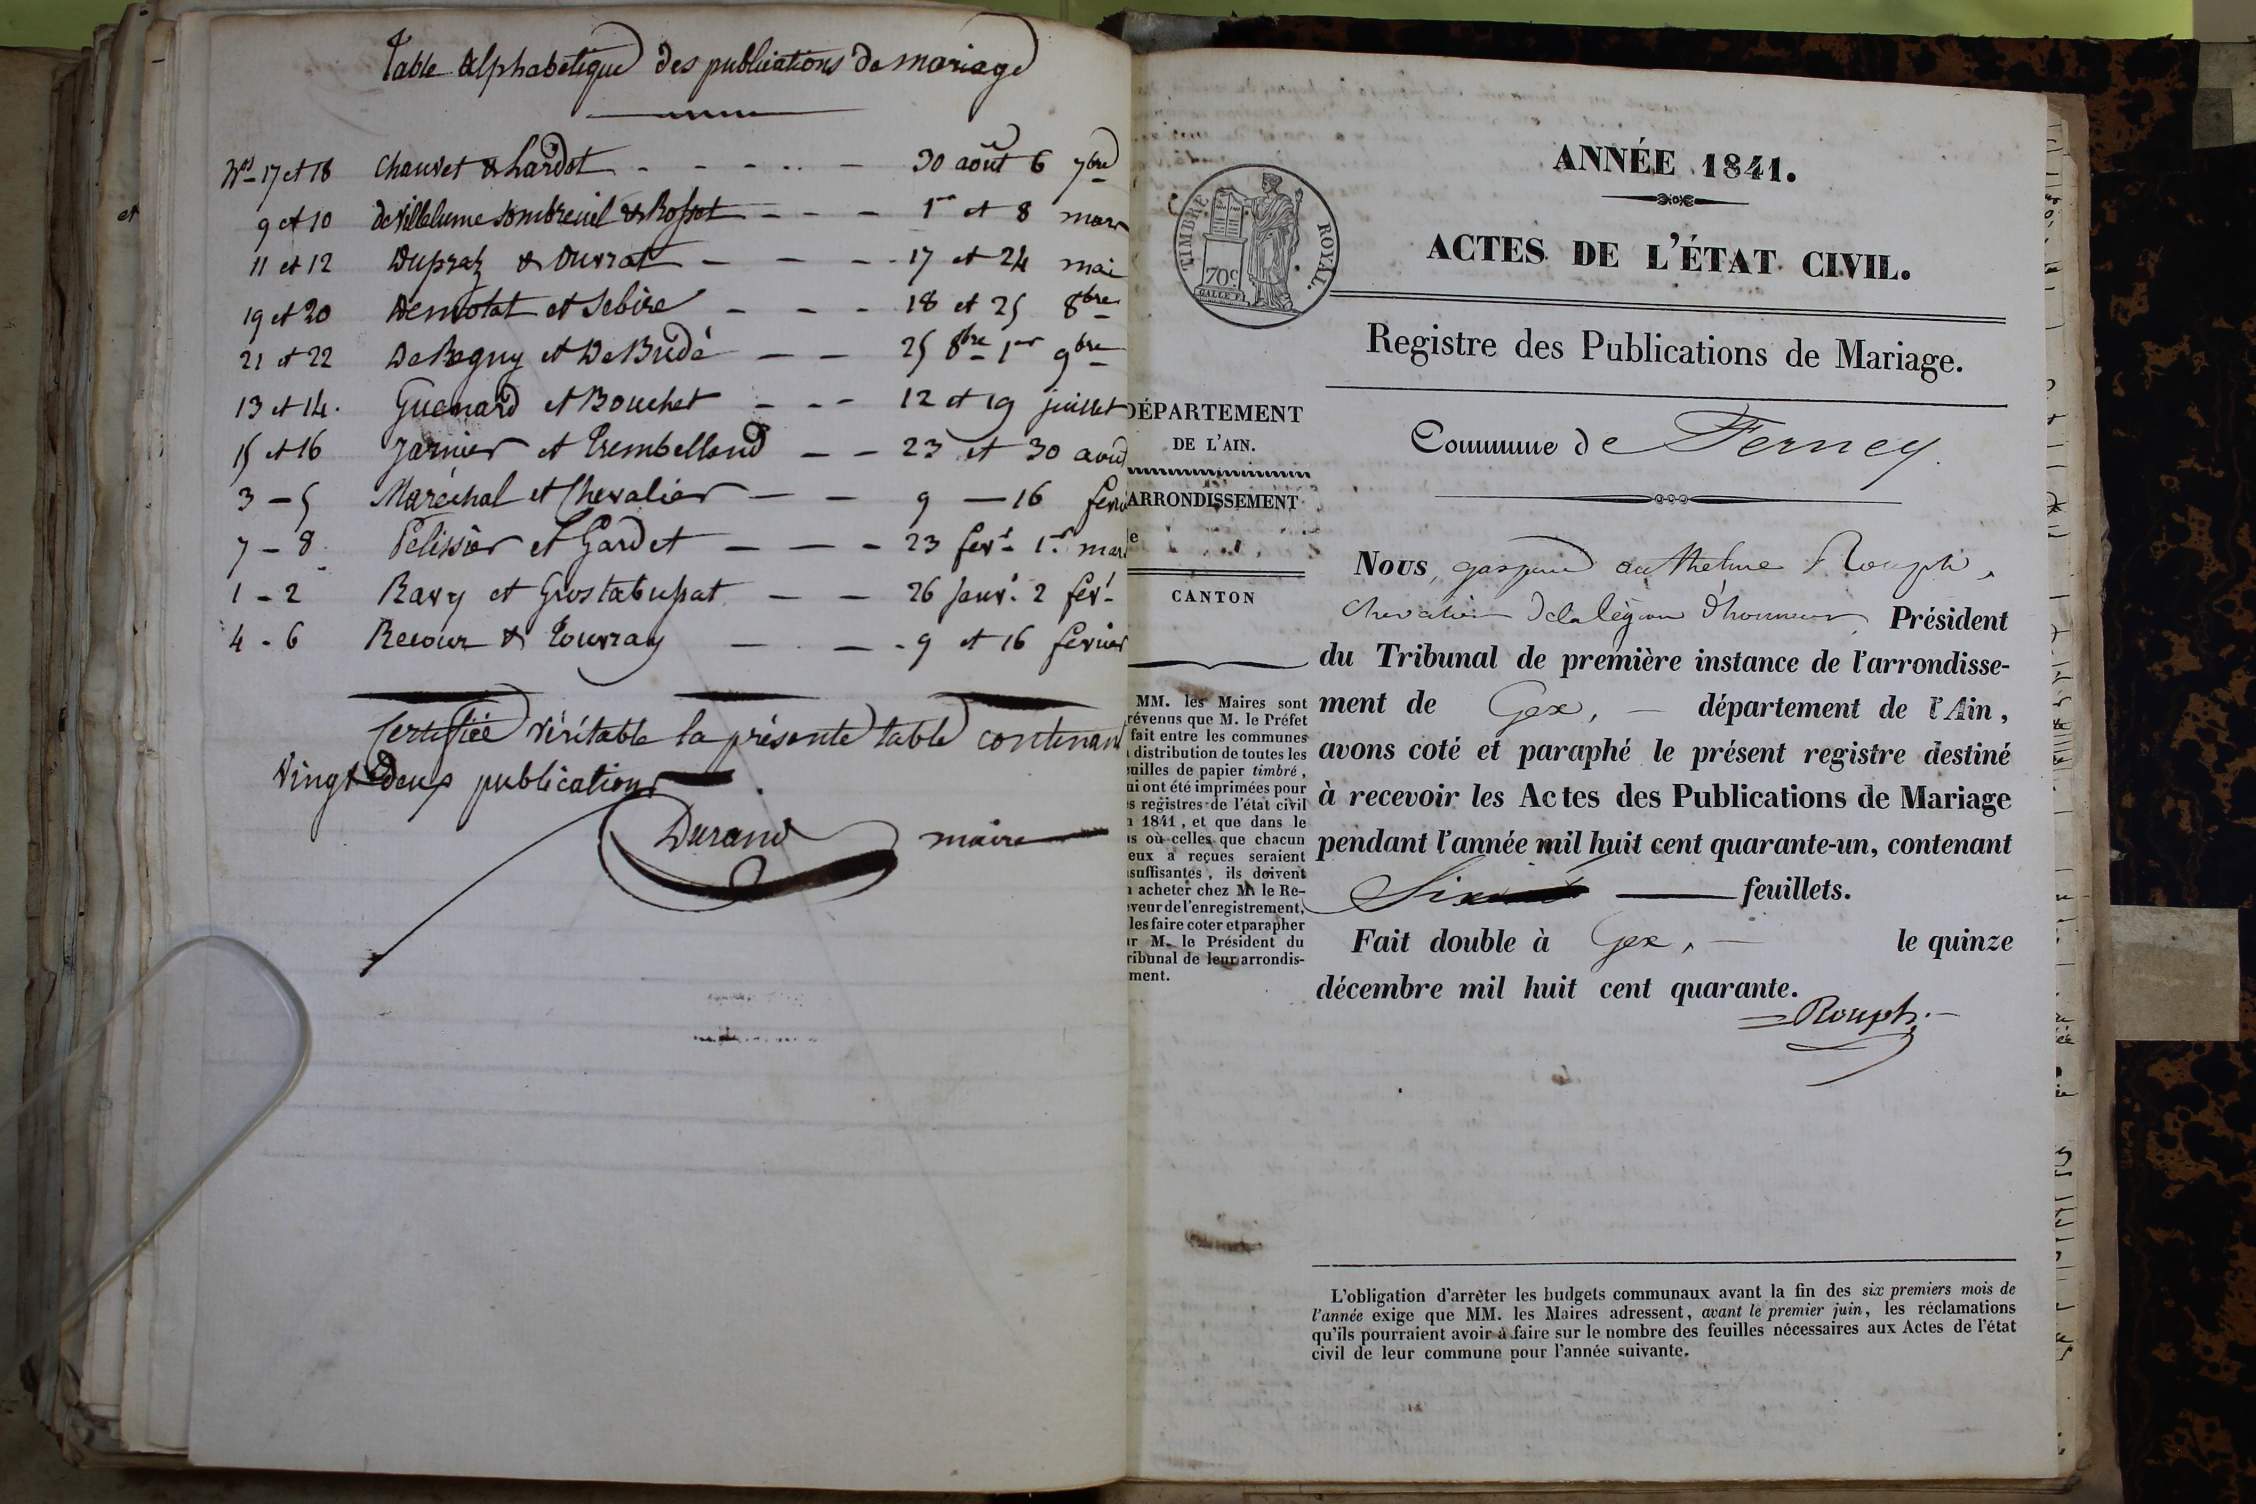 Table Alphabétique des publications de mariage
Nos 17 et 18 Chauvet & Lardot 30 août 6 7bre
9 et 10 de Villelume Sombreuil & Rosset 1er et 8 mars
11 et 12 Dupraz & Duvrat 17 et 24 mai
19 et 20 Demotat et Sebire 18 et 25 8bre
21 et 22 De Regny et De Budé 25 8bre 1er 9bre
13 et 14. Guenard et Bouchet 12 et 19 juillet
15 et 16 Jarnier et Trembelland 23 et 30 aoû
3 - 5 Maréchal et Chevalier 9 - 16 fevri
7 - 8 Pelissier et Gardet 23 fevr. 1er mar
1 - 2 Ravy et Grostabussat 26 Janvr. 2 févr.
4 - 6 Recour & Touvray 9 et 16 fevrier
Certifiée véritable la présente table contenant
vingt deux publications
Durand maire
et
ANNÉE 1841.
ACTES DE L'ÉTAT CIVIL.
TIMBRE ROYAL.
70c
Registre des Publications de Mariage.
DÉPARTEMENT
DE L'AIN.
ARRONDISSEMENT
CANTON
MM. les Maires sont
révenus que M. le Préfet
fait entre les communes
distribution de toutes les
uilles de papier timbré,
ui ont été imprimées pour
s registres de l'état civil
1841, et que dans le
s où celles que chacun
eux a reçues seraient
suffisantes, ils doivent
acheter chez M. le Re-
veur de l'enregistrement,
les faire coter et parapher
r M. le Président du
ribunal de leur arrondis-
ment.
Commune de Ferney.
Nous, gaspard anthelme Rouph,
chevalier de la légion d'honneur, Président
du Tribunal de première instance de l'arrondisse-
ment de Gex, département de l'Ain,
avons coté et paraphé le présent registre destiné
à recevoir les Actes des Publications de Mariage
pendant l'année mil huit cent quarante-un, contenant
Six feuillets.
Fait double à Gex, le quinze
décembre mil huit cent quarante.
Rouph.
L'obligation d'arrêter les budgets communaux avant la fin des six premiers mois de
l'année exige que MM. les Maires adressent, avant le premier juin, les réclamations
qu'ils pourraient avoir à faire sur le nombre des feuilles nécessaires aux Actes de l'état
civil de leur commune pour l'année suivante.